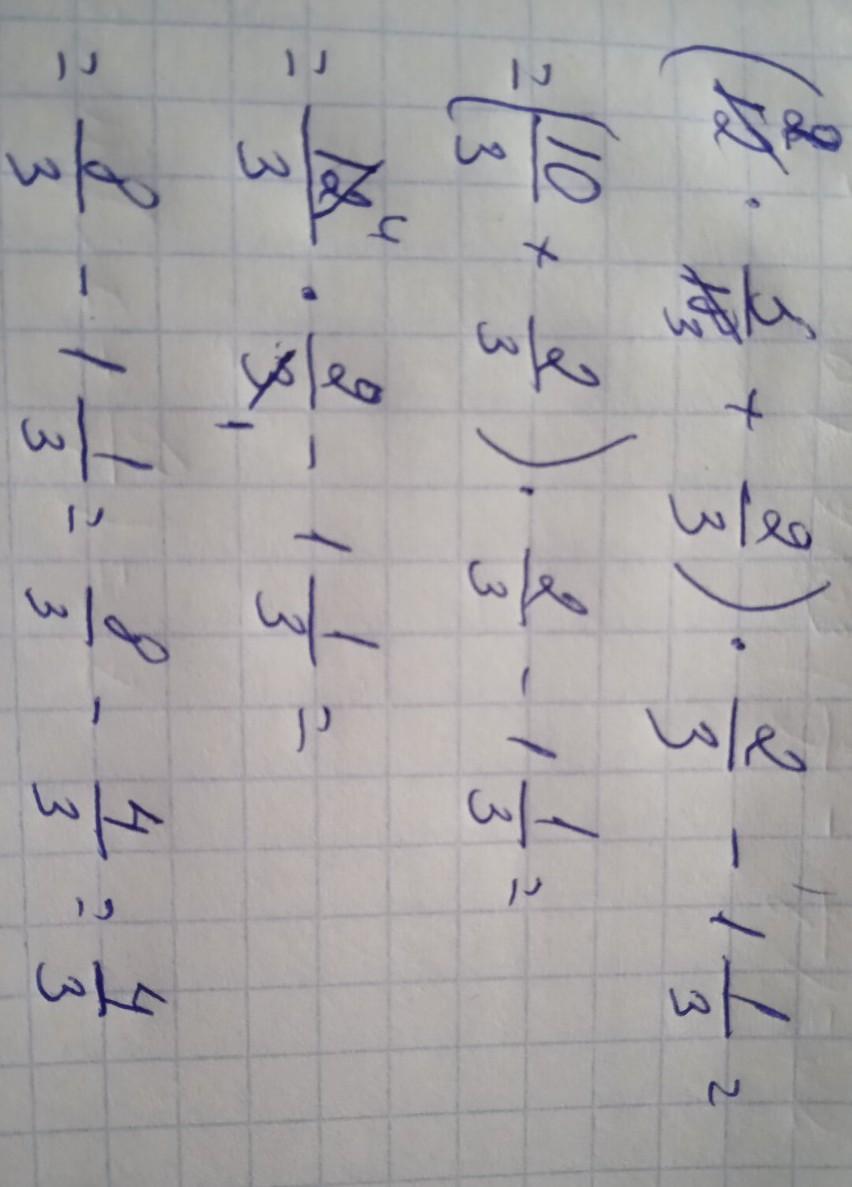 (12̸ ² · 5/18̸ ₃ + 2/3) · 2/3 - 1 1/3 =
= (10/3 + 2/3) · 2/3 - 1 1/3 =
= 12̸ ⁴/3 · 2/3̸ ₁ - 1 1/3 =
= 8/3 - 1 1/3 = 8/3 - 4/3 = 4/3